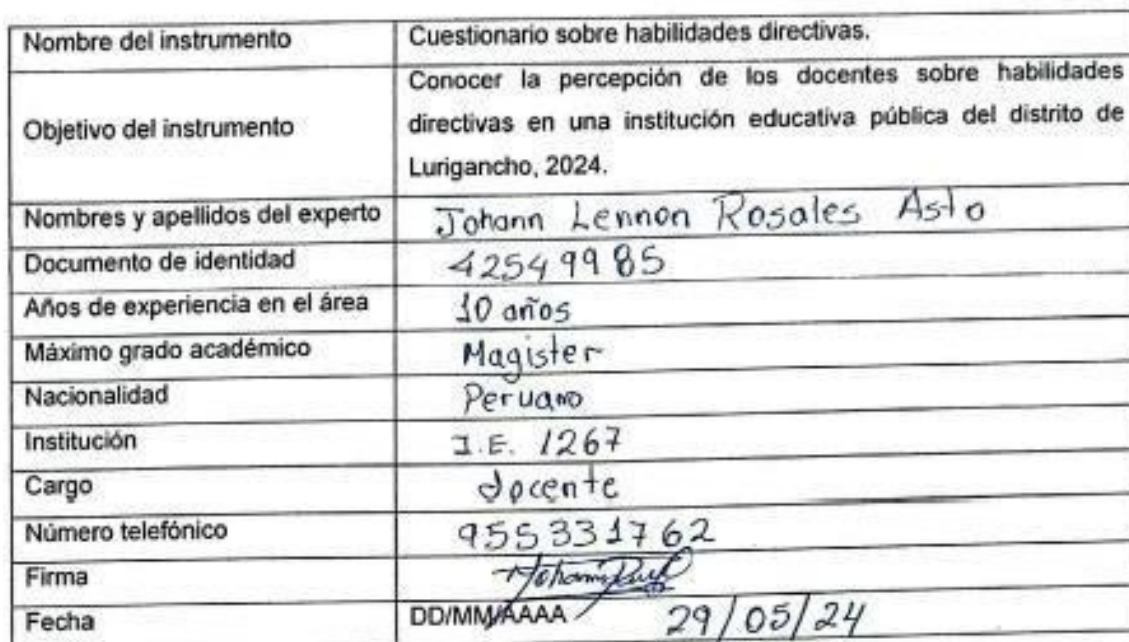 Nombre del instrumento Cuestionario sobre habilidades directivas.
Objetivo del instrumento Conocer la percepción de los docentes sobre habilidades
directivas en una institución educativa pública del distrito de
Lurigancho, 2024.
Nombres y apellidos del experto Johann Lennon Rosales Asto
Documento de identidad 42549985
Años de experiencia en el área 10 años
Máximo grado académico Magister
Nacionalidad Peruano
Institución I.E. 1267
Cargo docente
Número telefónico 955331762
Firma
Fecha DD/MM/AAAA 29/05/24